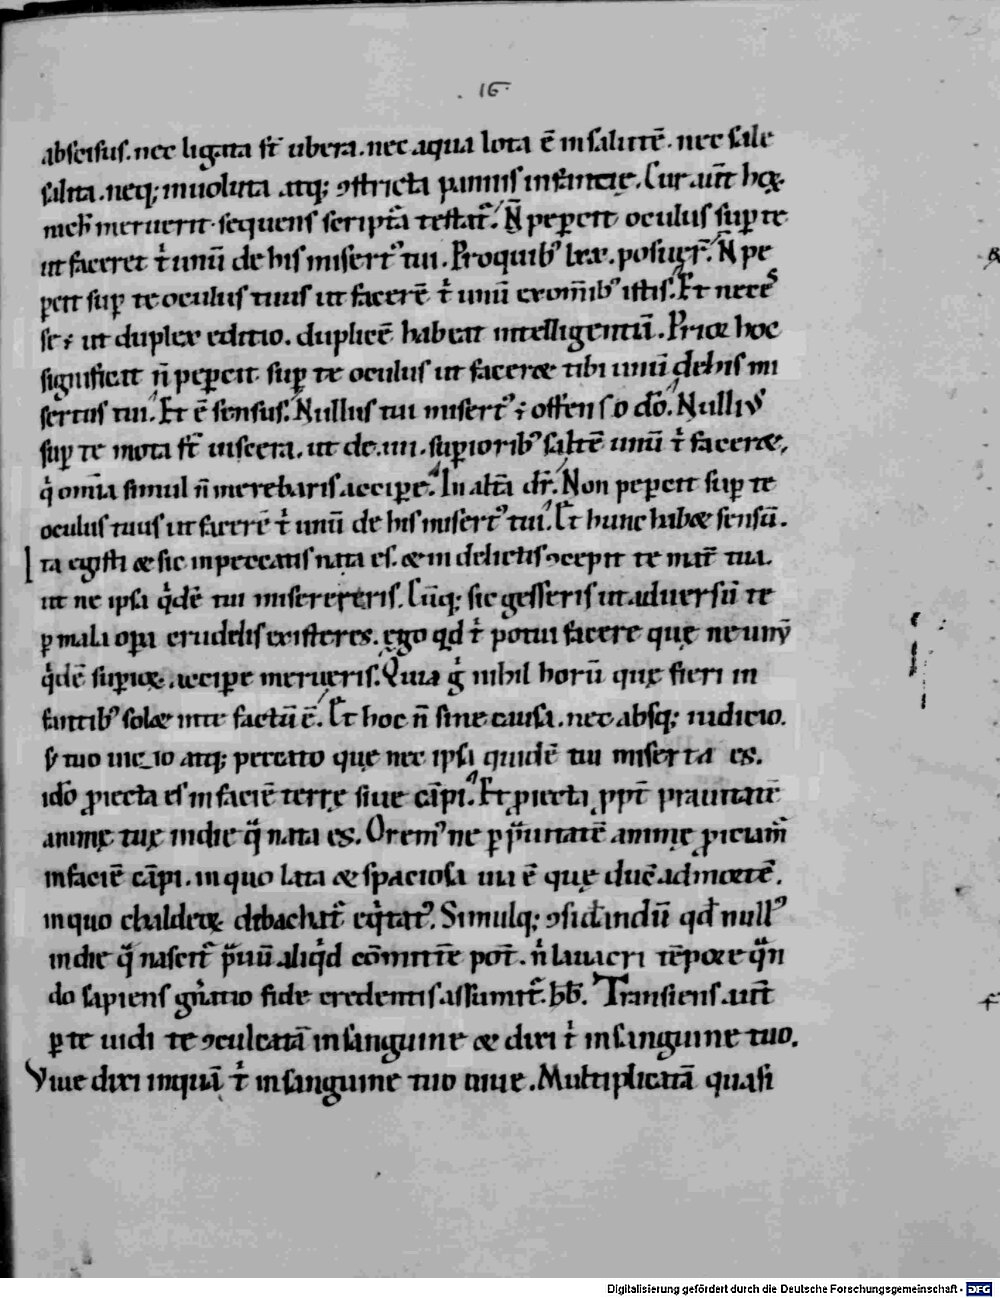 16
abscisus. nec ligata st̄ ubera. nec aqua lota ē in salutē. nec sale
salita. neq; inuoluta atq; ꝯstricta pannis infantię. Cur aut̄ hęc
meruerit sequens scriptā testat᷑. N̄ peꝑcit oculus suꝑ te
ut faceret t͛ unū de his misert᷒ tui. Pro quib᷒ lxx. posuer̄. N̄ pe
ꝑcit suꝑ te oculus tuus ut facerē t͛ unū ex om̄ib᷒ istis. Et neces
ut duplex editio. duplicē habeat intelligentiā. Prior hoc
significat n̄ peꝑcit suꝑ te oculus ut faceret tibi unū de his mi
sertus tui. Et ē sensus. Nullus tui misert᷒ ÷ offenso dō. Nullius
suꝑ te mota st̄ uiscera. ut de .iiii. suꝑiorib᷒ saltē unū t͛ faceret,
q͛ omīa simul n̄ merebaris acciꝑe. In altā dr̄. Non peꝑcit suꝑ te
oculus tuus ut facerē t͛ unū de his misert᷒ tui. Et hunc habet sensū.
Ita egisti et sic in peccatis nata es. et in delictis ꝯcepit te mat̄ tua.
ut ne ipsa q͛dē tui miserereris. Cūq; sic gesseris ut aduersū te
ꝑ mala oꝑa crudelis existeres. ego qd t͛ potui facere quę ne unū
q͛dē suꝑiorum acciꝑe merueris. Quia g͛ nihil horū quę fieri in
fantib᷒ solet in te factū ē. Et hoc n̄ sine causa. nec absq; iudicio.
tuo uicio atq; peccato que nec ipsa quidē tui miserta es.
idō ꝓiecta es in faciē terrę siue cāpi. Et ꝓiecta ꝓpt̄ prauitatē
animę tuę in die q̄ nata es. Orem᷒ ne ꝑ prauitatē animę ꝓiciam̄
in faciē cāpi. in quo lata et spaciosa uia ē quę ducit ad mortē.
in quo chaldeorum debachat̄ eq͛tat᷒. Simulq; ꝯsiderandū qd null᷒
in die q̄ nascit̄ aliq͛d cōmittē pot̄. n͛ lauacri tēpore qn̄
do sapiens fide credentis assumit̄. Transiens aut̄
ꝑ te uidi te ꝯculcatā in sanguine et dixi t͛ in sanguine tuo.
Viue dixi inquā t͛ in sanguine tuo uiue. Multiplicatā quasi
Digitalisierung gefördert durch die Deutsche Forschungsgemeinschaft - DFG